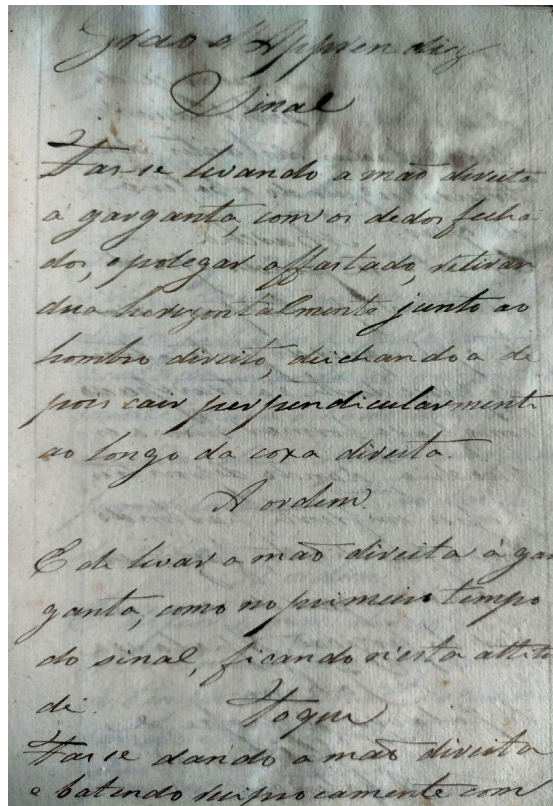 Grao d'Apprendiz
Sinal
Fas-se levando a mão direita
á garganta, com os dedos fecha
dos, o polegar affastado, retiran
do-a horizontalmente junto ao
hombro direito, deichando a de
pois cair perpendicularmente
ao longo da coxa direita.
A ordem.
É de levar a mão direita á gar
ganta, como no primeiro tempo
do sinal, ficando n'esta attitu
de. Toque
Fas-se dando a mão direita
e batendo reciprocamente com